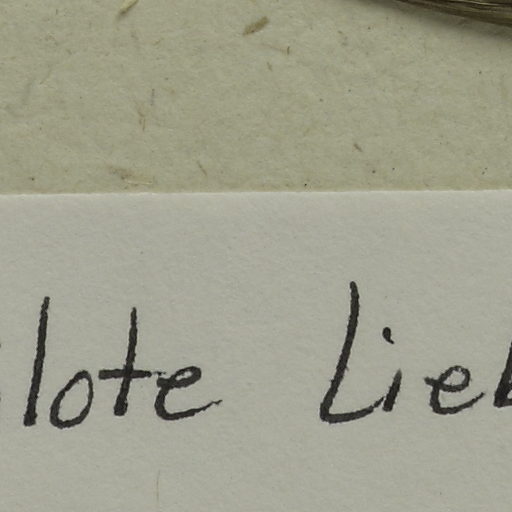 lote Lieb